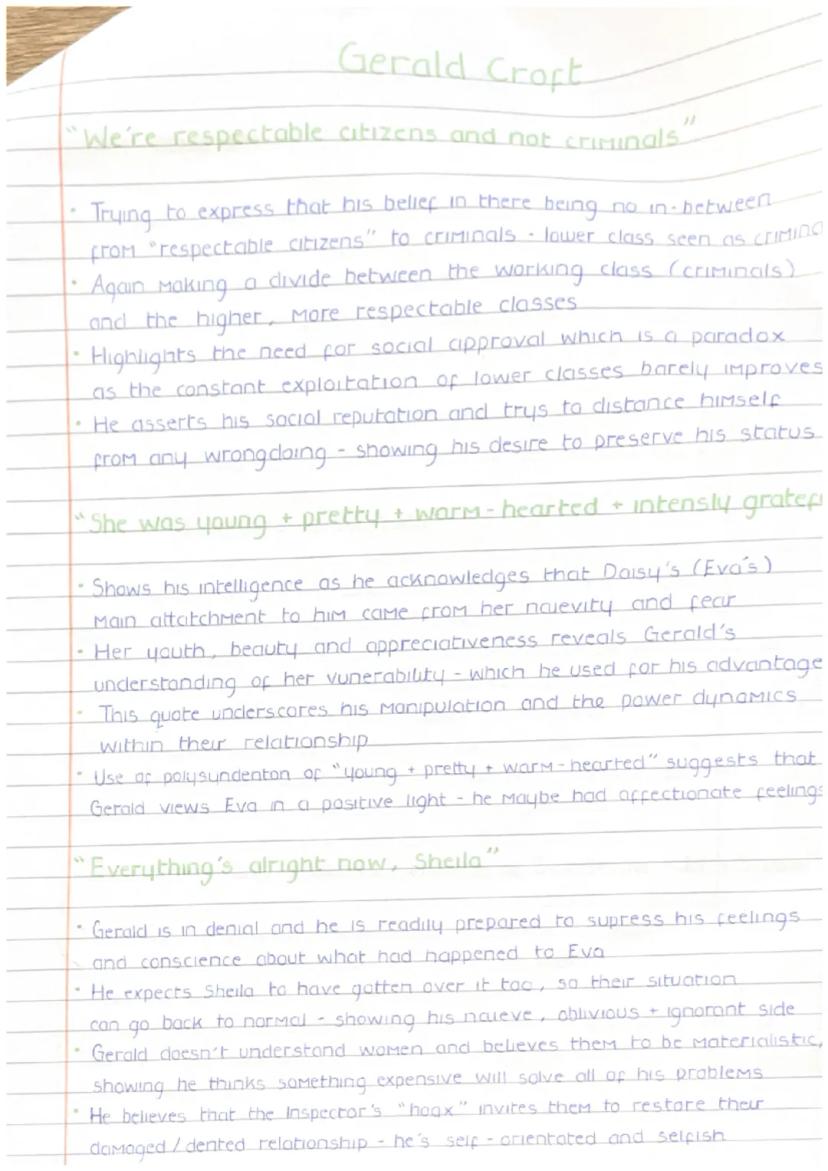 Gerald Croft
"We're respectable citizens and not criminals"
· Trying to express that his belief in there being no in-between
from "respectable citizens" to criminals - lower class seen as crimina
· Again making a divide between the working class (criminals)
and the higher, more respectable classes
· Highlights the need for social approval which is a paradox
as the constant exploitation of lower classes barely improves
· He asserts his social reputation and trys to distance himself
from any wrongdoing - showing his desire to preserve his status
"She was young + pretty + warm-hearted + intensly gratef
· Shows his intelligence as he acknowledges that Daisy's (Eva's)
main attatchment to him came from her naievity and fear
· Her youth, beauty and appreciativeness reveals Gerald's
understanding of her vunerability - which he used for his advantage
· This quote underscores his manipulation and the power dynamics
within their relationship
· Use of polysundenton of "young + pretty + warm-hearted" suggests that
Gerald views Eva in a positive light - he maybe had affectionate feelings
"Everything's alright now, Sheila"
· Gerald is in denial and he is readily prepared to supress his feelings
and conscience about what had happened to Eva
· He expects Sheila to have gotten over it too, so their situation
can go back to normal - showing his naieve, oblivious + ignorant side
· Gerald doesn't understand women and believes them to be materialistic,
showing he thinks something expensive will solve all of his problems
· He believes that the Inspector's "hoax" invites them to restore their
damaged / dented relationship - he's self-orientated and selfish